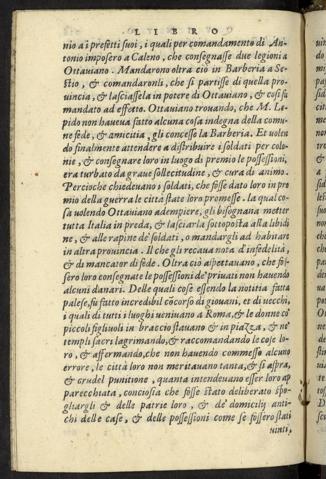 LIBRO
nio a i prefetti suoi, i quali per comandamento di An-
tonio imposero a Caleno, che consegnasse due legioni a
Ottauiano. Mandarono oltra ciò in Barberia a Se-
stio, & comandaronli, che si partisse di quella pro-
uincia, & lasciassela in potere di Ottauiano, & così fu
mandato ad effetto. Ottauiano trouando, che M. Le-
pido non haueua fatto alcuna cosa indegna della comu-
ne fede, & amicitia, gli concesse la Barberia. Et uolen
do finalmente attendere a distribuire i soldati per colo-
nie, & consegnare loro in luogo di premio le possessioni,
era turbato da graue sollecitudine, & cura di animo.
Percioche chiedeuano i soldati, che fosse dato loro in pre
mio della guerra le città state loro promesse. la qual co-
sa uolendo Ottauiano adempiere, gli bisognaua metter
tutta Italia in preda, & lasciarla sottoposta alla libidi
ne, & alle rapine de' soldati, o mandargli ad habitare
in altra prouincia. Il che gli recaua nota d'infedeltà,
& di mancator di fede. Oltra ciò aspettauano, che fos-
sero loro consegnate le possessioni de' priuati non hauendo
alcuni danari. Delle quali cose essendo la notitia fatta
palese, fu fatto incredibil cōcorso di giouani, et di uecchi,
i quali di tutti i luoghi ueniuano a Roma, & le donne co'
piccoli figliuoli in braccio stauano & in piazza, & ne'
tempij sacri lagrimando, & raccomandando le cose lo-
ro, & affermando, che non hauendo commesso alcuno
errore, le città loro non meritauano tanta, & sì aspra,
& crudel punitione, quanta intendeuano esser loro ap
parecchiata, conciosia che fosse stato deliberato spo-
gliargli & delle patrie loro, & de' domicilij anti-
chi delle case, & delle possessioni come se fossero stati
uinti,